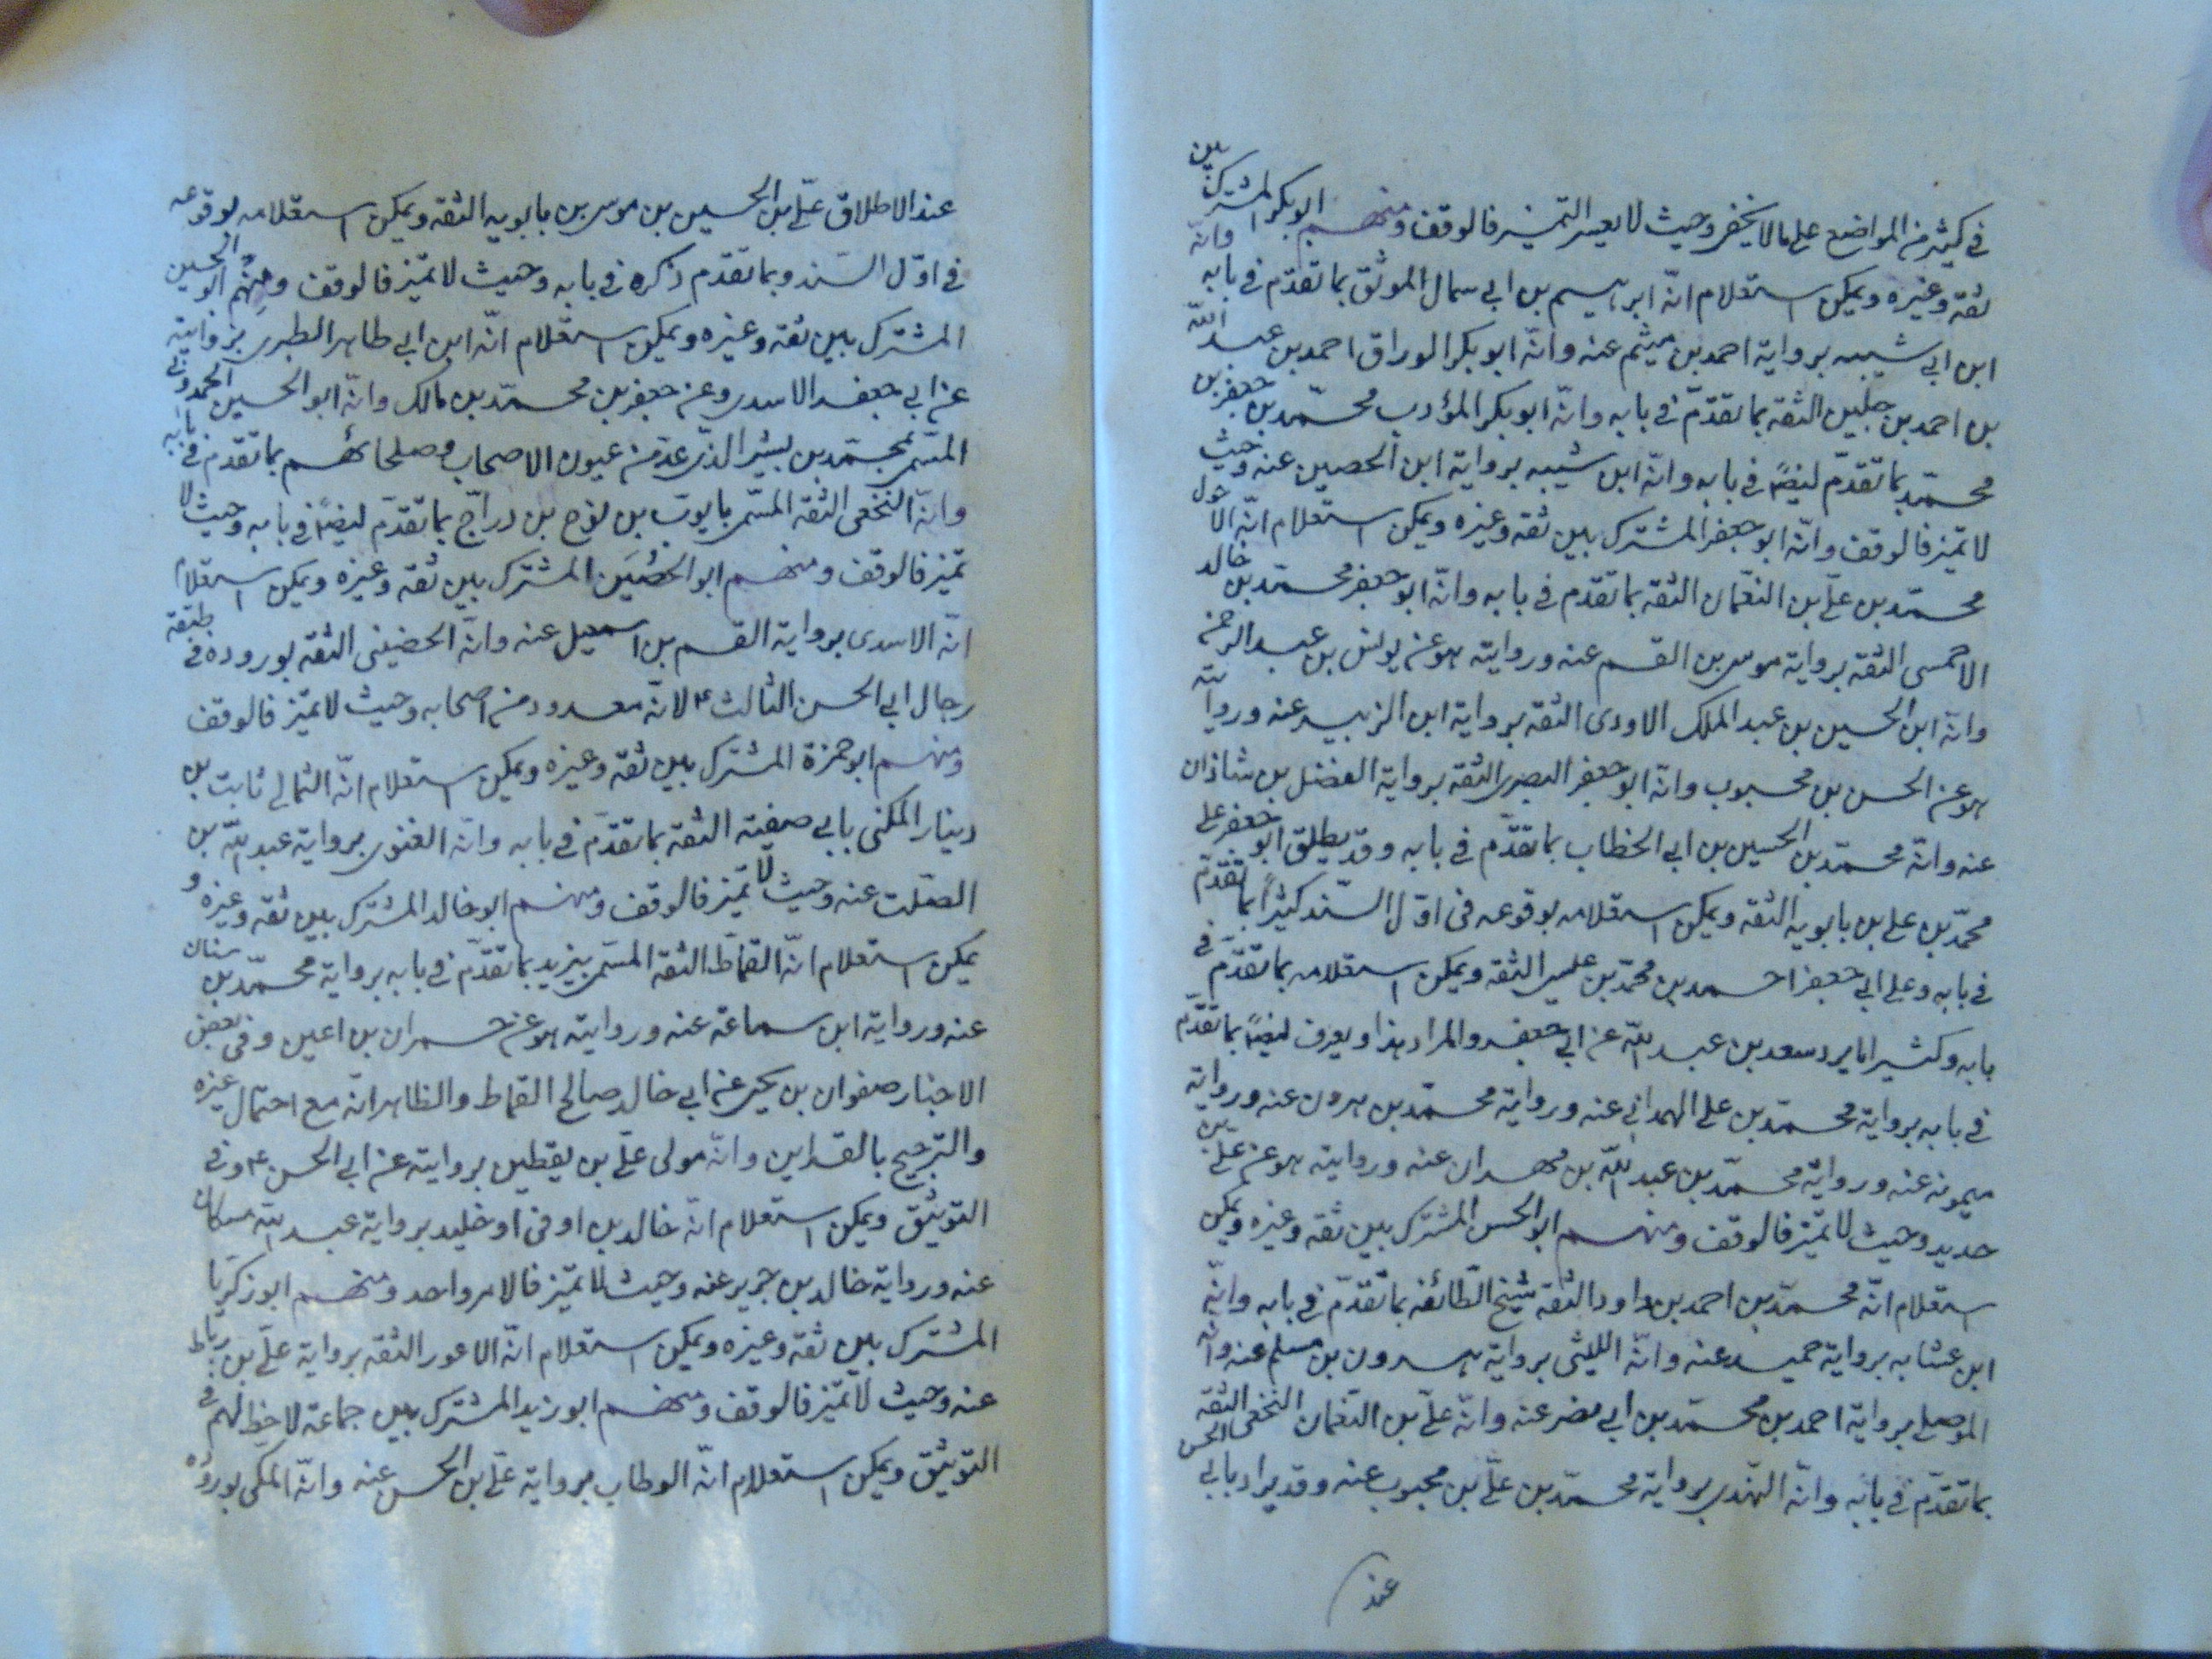 في كثير من المواضع على ما لا يخفى وحيث لا يعسر التميز فالوقف ومنهم ابو بكر المشترك بين
ثقة وغيره ويمكن استعلام انّه ابرهيم بن ابي سمال الموثق بما تقدّم في بابه وانّه
ابن ابي شيبه برواية احمد بن ميثم عنه وانّه ابو بكر الوراق احمد بن عبد الله
بن احمد بن جلين الثقة بما تقدّم في بابه وانّه ابو بكر المؤدب محمّد بن جعفر بن
محمّد بما تقدّم ايضًا في بابه وانّه ابن شيبه برواية ابن الحصين عنه وحيث
لا تميّز فالوقف وانّه ابو جعفر المشترك بين ثقة وغيره ويمكن استعلام انّه الاحول
محمّد بن علي بن النعمان الثقة بما تقدّم في بابه وانّه ابو جعفر محمّد بن خالد
الاحمسى الثقة برواية موسى بن القسم عنه وروايته هو عن يونس بن عبد الرحمن
وانّه ابن الحسين بن عبد الملك الاودى الثقة برواية ابن الزبير عنه وروايته
هو عن الحسن بن محبوب وانّه ابو جعفر البصرى الثقة برواية الفضل بن شاذان
عنه وانّه محمّد بن الحسين بن ابي الخطاب بما تقدّم في بابه وقد يطلق ابو جعفر على
محمّد بن علي بن بابويه الثقة ويمكن استعلامه بوقوعه في اوّل السّند كثيرًا بما تقدّم
في بابه وعلى ابي جعفر احمد بن محمّد بن عيسى الثقة ويمكن استعلامه بما تقدّم في
بابه وكثيرا ما يرد سعد بن عبد الله عن ابي جعفر والمراد هذا ويعرف ايضًا بما تقدّم
في بابه برواية محمّد بن علي الهمداني عنه ورواية محمّد بن هرون عنه ورواية
ميمونه عنه ورواية محمّد بن عبد الله بن مهران عنه وروايته هو عن علي بن
حديد وحيث لا تميّز فالوقف ومنهم ابو الحسن المشترك بين ثقة وغيره ويمكن
استعلام انّه محمّد بن احمد بن داود الثقة شيخ الطّائفه بما تقدّم في بابه وانّه
ابن عشابه برواية حميد عنه وانّه الليثى برواية هرون بن مسلم عنه وانّه
الموصلي برواية احمد بن محمّد بن ابي نصر عنه وانّه علي بن النعمان النخعى الثقة
بما تقدّم في بابه وانّه النهدى برواية محمّد بن علي بن محبوب عنه وقد يراد بابي الحسن
عند
عند الاطلاق علي بن الحسين بن موسى بن بابويه الثقة ويمكن استعلامه بوقوعه
في اوّل السّند وبما تقدّم ذكره في بابه وحيث لا تميّز فالوقف ومنهم ابو الحسين
المشترك بين ثقة وغيره ويمكن استعلام انّه ابن ابي طاهر الطبرى بروايته
عن ابي جعفر الاسدى وعن جعفر بن محمّد بن مالك وانّه ابو الحسين الحمدوني
المسمّى بمحمّد بن بشر الذى عدّ من عيون الاصحاب وصلحائهم بما تقدّم في بابه
وانّه النخعى الثقة المسمّى بايوب بن نوح بن درّاج بما تقدّم ايضًا في بابه وحيث لا
تميّز فالوقف ومنهم ابو الحُصَين المشترك بين ثقة وغيره ويمكن استعلام
انّه الاسدى برواية القسم بن اسمعيل عنه وانّه الحضينى الثقة بوروده في طبقة
رجال ابي الحسن الثالث ع لانّه معدود من اصحابه وحيث لا تميّز فالوقف
ومنهم ابو حمزة المشترك بين ثقة وغيره ويمكن استعلام انّه الثمالي ثابت بن
دينار المكنى بابي صفيه الثقة بما تقدّم في بابه وانّه الغنوى برواية عبد الله بن
الصلت عنه وحيث لا تميّز فالوقف ومنهم ابو خالد المشترك بين ثقة وغيره و
يمكن استعلام انّه القمّاط الثقة المسمّى بيزيد بما تقدّم في بابه برواية محمّد بن سنان
عنه ورواية ابن سماعة عنه وروايته هو عن حمران بن اعين وفي بعض
الاخبار صفوان بن يحيى عن ابي خالد صالح القماط والظاهر انّه مع احتمال غيره
والترجيح بالقراين وانّه مولى علي بن يقطين بروايته عن ابي الحسن ع وفي
التوثيق ويمكن استعلام انّه خالد بن اوفى او خليد برواية عبد الله مسكان
عنه ورواية خالد بن جرير عنه وحيث لا تميّز فالامر واحد ومنهم ابو زكريا
المشترك بين ثقة وغيره ويمكن استعلام انّه الاعور الثقة برواية علي بن رباط
عنه وحيث لا تميّز فالوقف ومنهم ابو زيد المشترك بين جماعة لا حظ لهم في
التوثيق ويمكن استعلام انّه الوطاب برواية علي بن الحسن عنه وانّه المكى بوروده